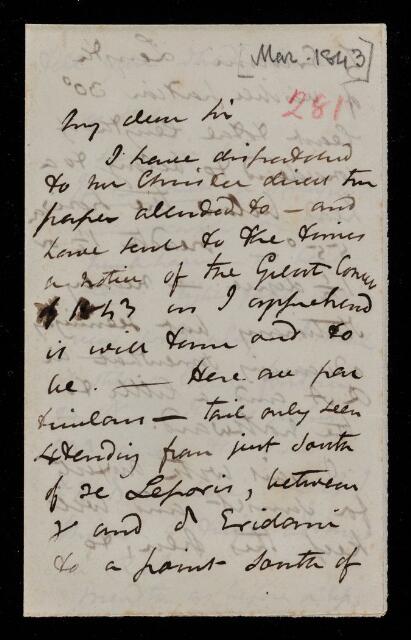 [Mar. 1843]
281
My dear Sir
I have dispatched
to Mr Christie direct the
paper alluded to — and
have sent to the Times
a notice of the Great Comet
of 1843 as I apprehend
it will turn out to
be. — Here are par
ticulars — tail only seen
extending from just South
of Leporis, between
γ and δ Eridani
to a point South of